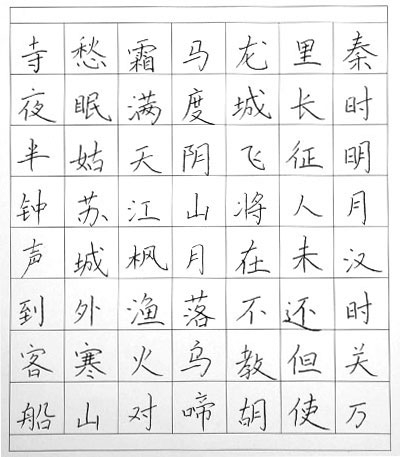 秦时明月汉时关万
里长征人未还但使
龙城飞将在不教胡
马度阴山月落乌啼
霜满天江枫渔火对
愁眠姑苏城外寒山
寺夜半钟声到客船